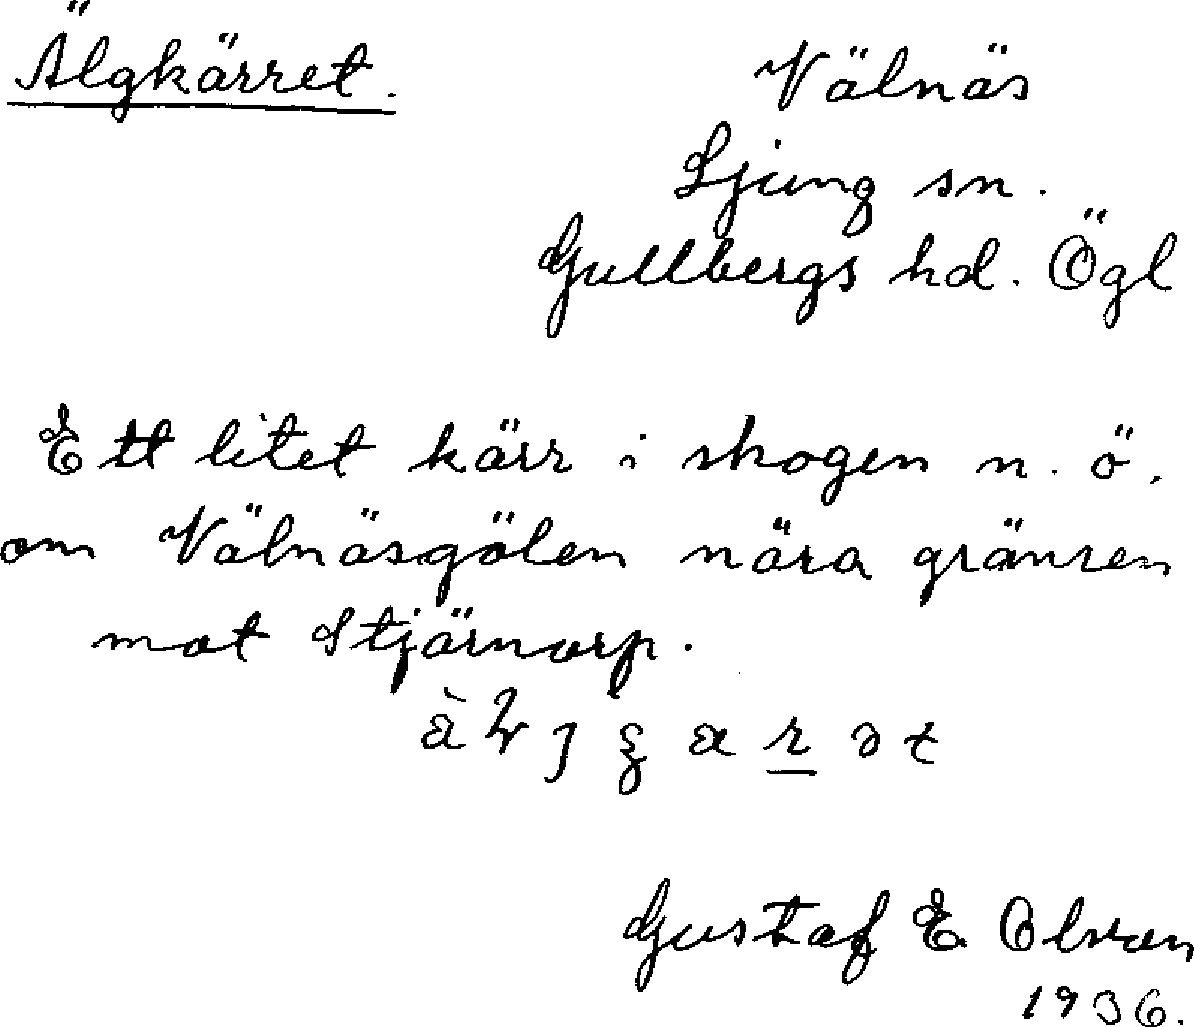 Älgkärret.
Välnäs
Ljung sn.
Gullbergs hd. Ögl
Ett litet kärr i skogen n. ö.
om Välnäsgölen nära gränsen
mot Stjärnorp.
Gustaf E. Olsson
1936.